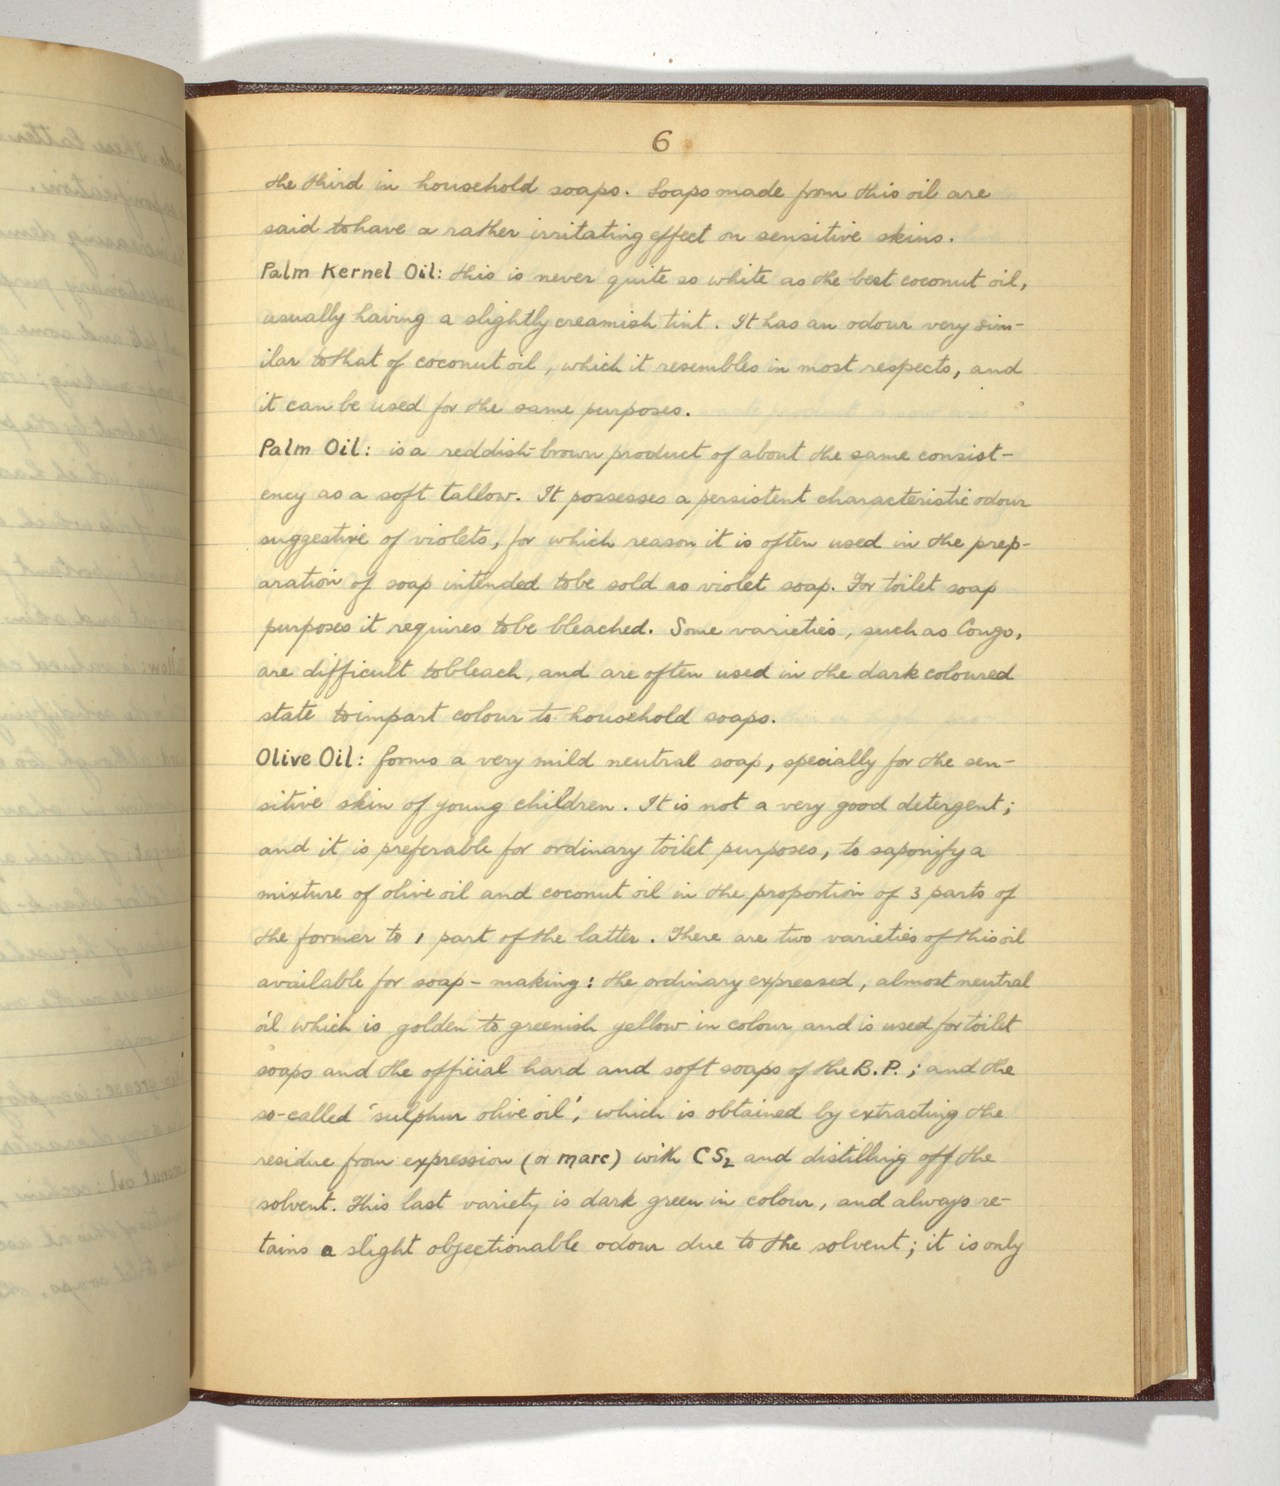 6
the third in household soaps. Soaps made from this oil are
said to have a rather irritating effect on sensitive skins.
Palm Kernel Oil: this is never quite so white as the best coconut oil,
usually having a slightly creamish tint. It has an odour very sim-
ilar to that of coconut oil, which it resembles in most respects, and
it can be used for the same purposes.
Palm Oil: is a reddish-brown product of about the same consist-
ency as a soft tallow. It possesses a persistent characteristic odour
suggestive of violets, for which reason it is often used in the prep-
aration of soap intended to be sold as violet soap. For toilet soap
purposes it requires to be bleached. Some varieties, such as Congo,
are difficult to bleach, and are often used in the dark coloured
state to impart colour to household soaps.
Olive Oil: forms a very mild neutral soap, specially for the sen-
sitive skin of young children. It is not a very good detergent;
and it is preferable for ordinary toilet purposes, to saponify a
mixture of olive oil and coconut oil in the proportion of 3 parts of
the former to 1 part of the latter. There are two varieties of this oil
available for soap-making: the ordinary expressed, almost neutral
oil which is golden to greenish yellow in colour and is used for toilet
soaps and the official hard and soft soaps of the B.P.; and the
so-called 'sulphur olive oil', which is obtained by extracting the
residue from expression (or marc) with CS₂ and distilling off the
solvent. This last variety is dark green in colour, and always re-
tains a slight objectionable odour due to the solvent; it is only